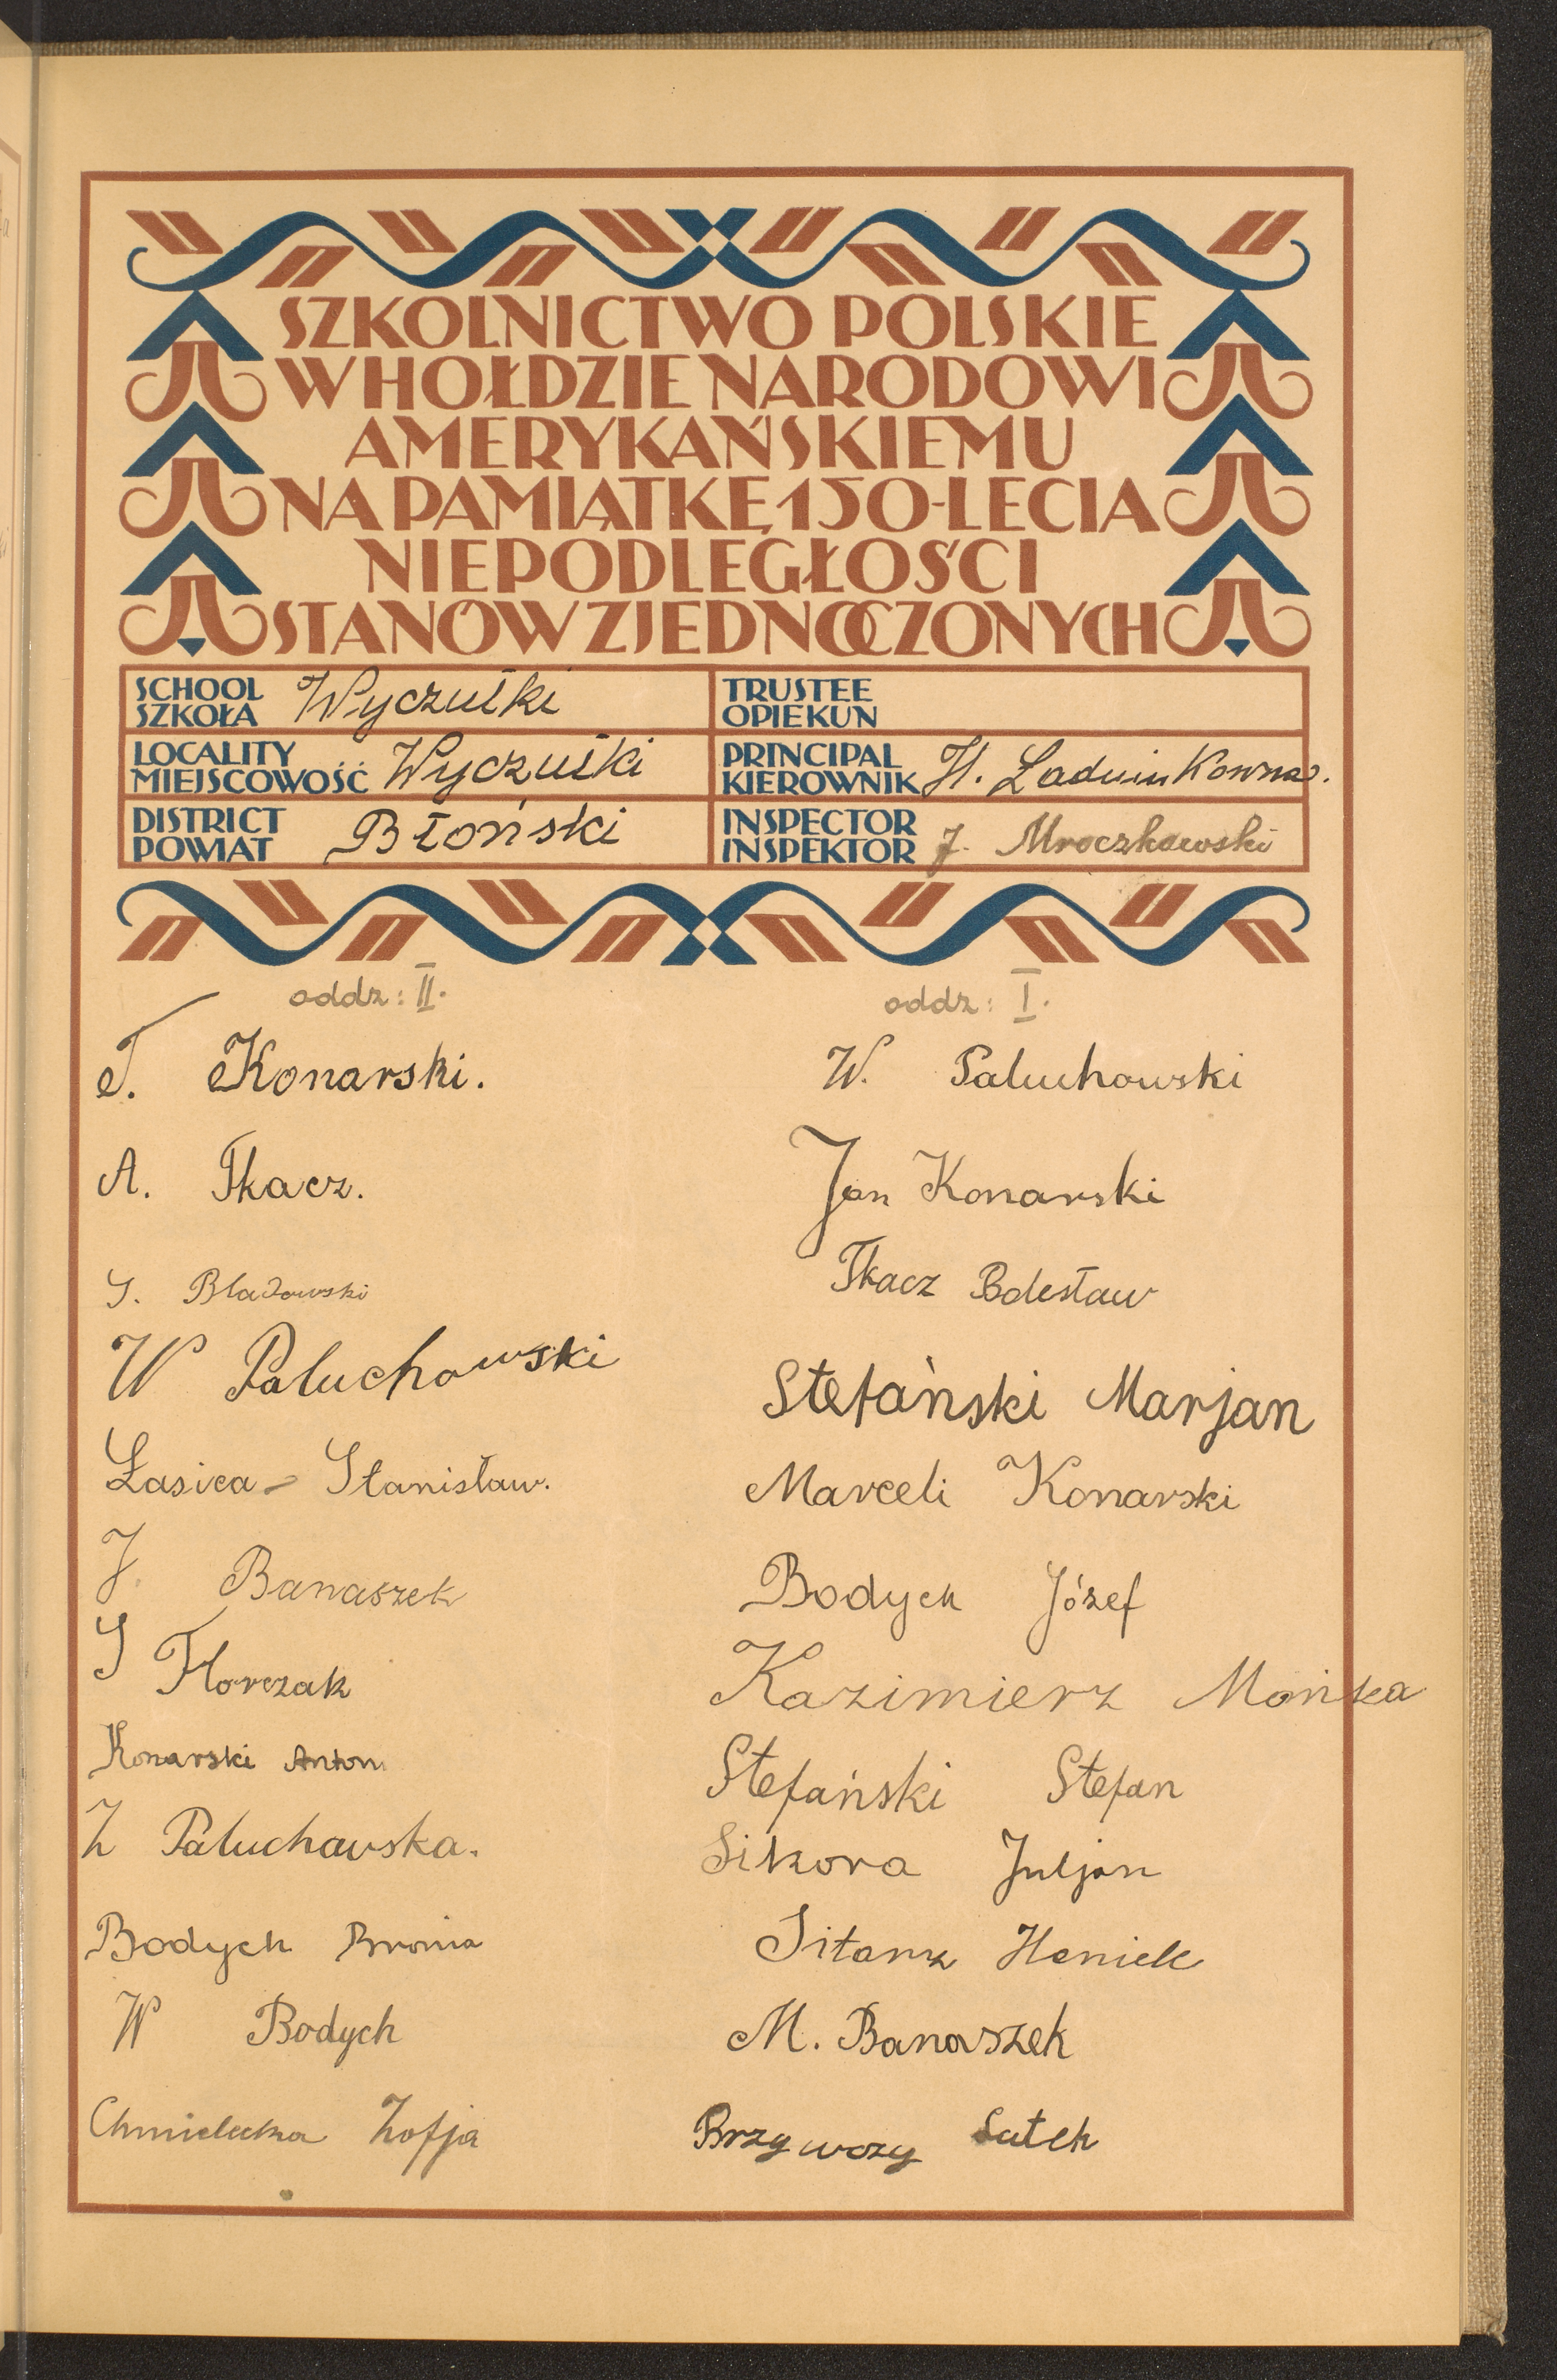 SZKOLNICTWO POLSKIE
W HOŁDZIE NARODOWI
AMERYKAŃSKIEMU
NA PAMIĄTKĘ 150-LECIA
NIEPODLEGŁOŚCI
STANÓW ZJEDNOCZONYCH
SCHOOL
SZKOŁA Wyczułki
LOCALITY
MIEJSCOWOŚĆ Wyczułki
DISTRICT
POWIAT Błoński
TRUSTEE
OPIEKUN
PRINCIPAL
KIEROWNIK H.
INSPECTOR
INSPEKTOR J. Mroczkowski
oddz: II.
T. Konarski.
A. Tkacz.
S. Bladowski
W Paluchowski
Łasica Stanisław.
J. Banaszek
S Florczak
Konarski Antoni
Z Paluchowska.
Bodych Bronia
W Bodych
Chmielecka Zofja
oddz: I.
W. Paluchowski
Jan Konarski
Tkacz Bolesław
Stefański Marjan
Marceli Konarski
Bodych Józef
Kazimierz Mońka
Stefański Stefan
Sikora Juljan
Sitarz Heniek
M. Banaszek
Brzywczy Lutek